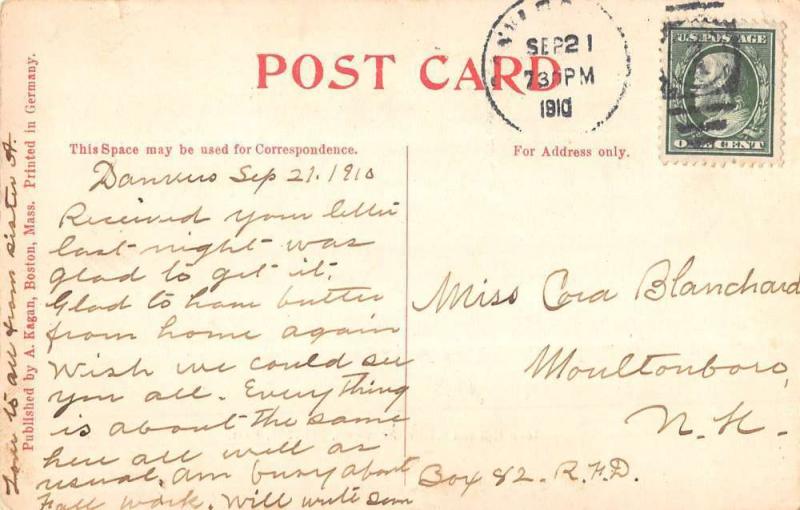 POST CARD
SEP 21
730 PM
1910
U.S. POSTAGE
ONE CENT
This Space may be used for Correspondence.
For Address only.
Danvers Sep 21. 1910
Received your letter
last night was
glad to get it.
Glad to have butter
from home again
Wish we could see
you all. Everything
is about the same
here all well as
usual. Am busy about
Fall work. Will write soon
Love to all from sister A.
Published by A. Kagan, Boston, Mass. Printed in Germany.
Miss Cora Blanchard
Moultonboro,
N. H.
Box 82. R.F.D.